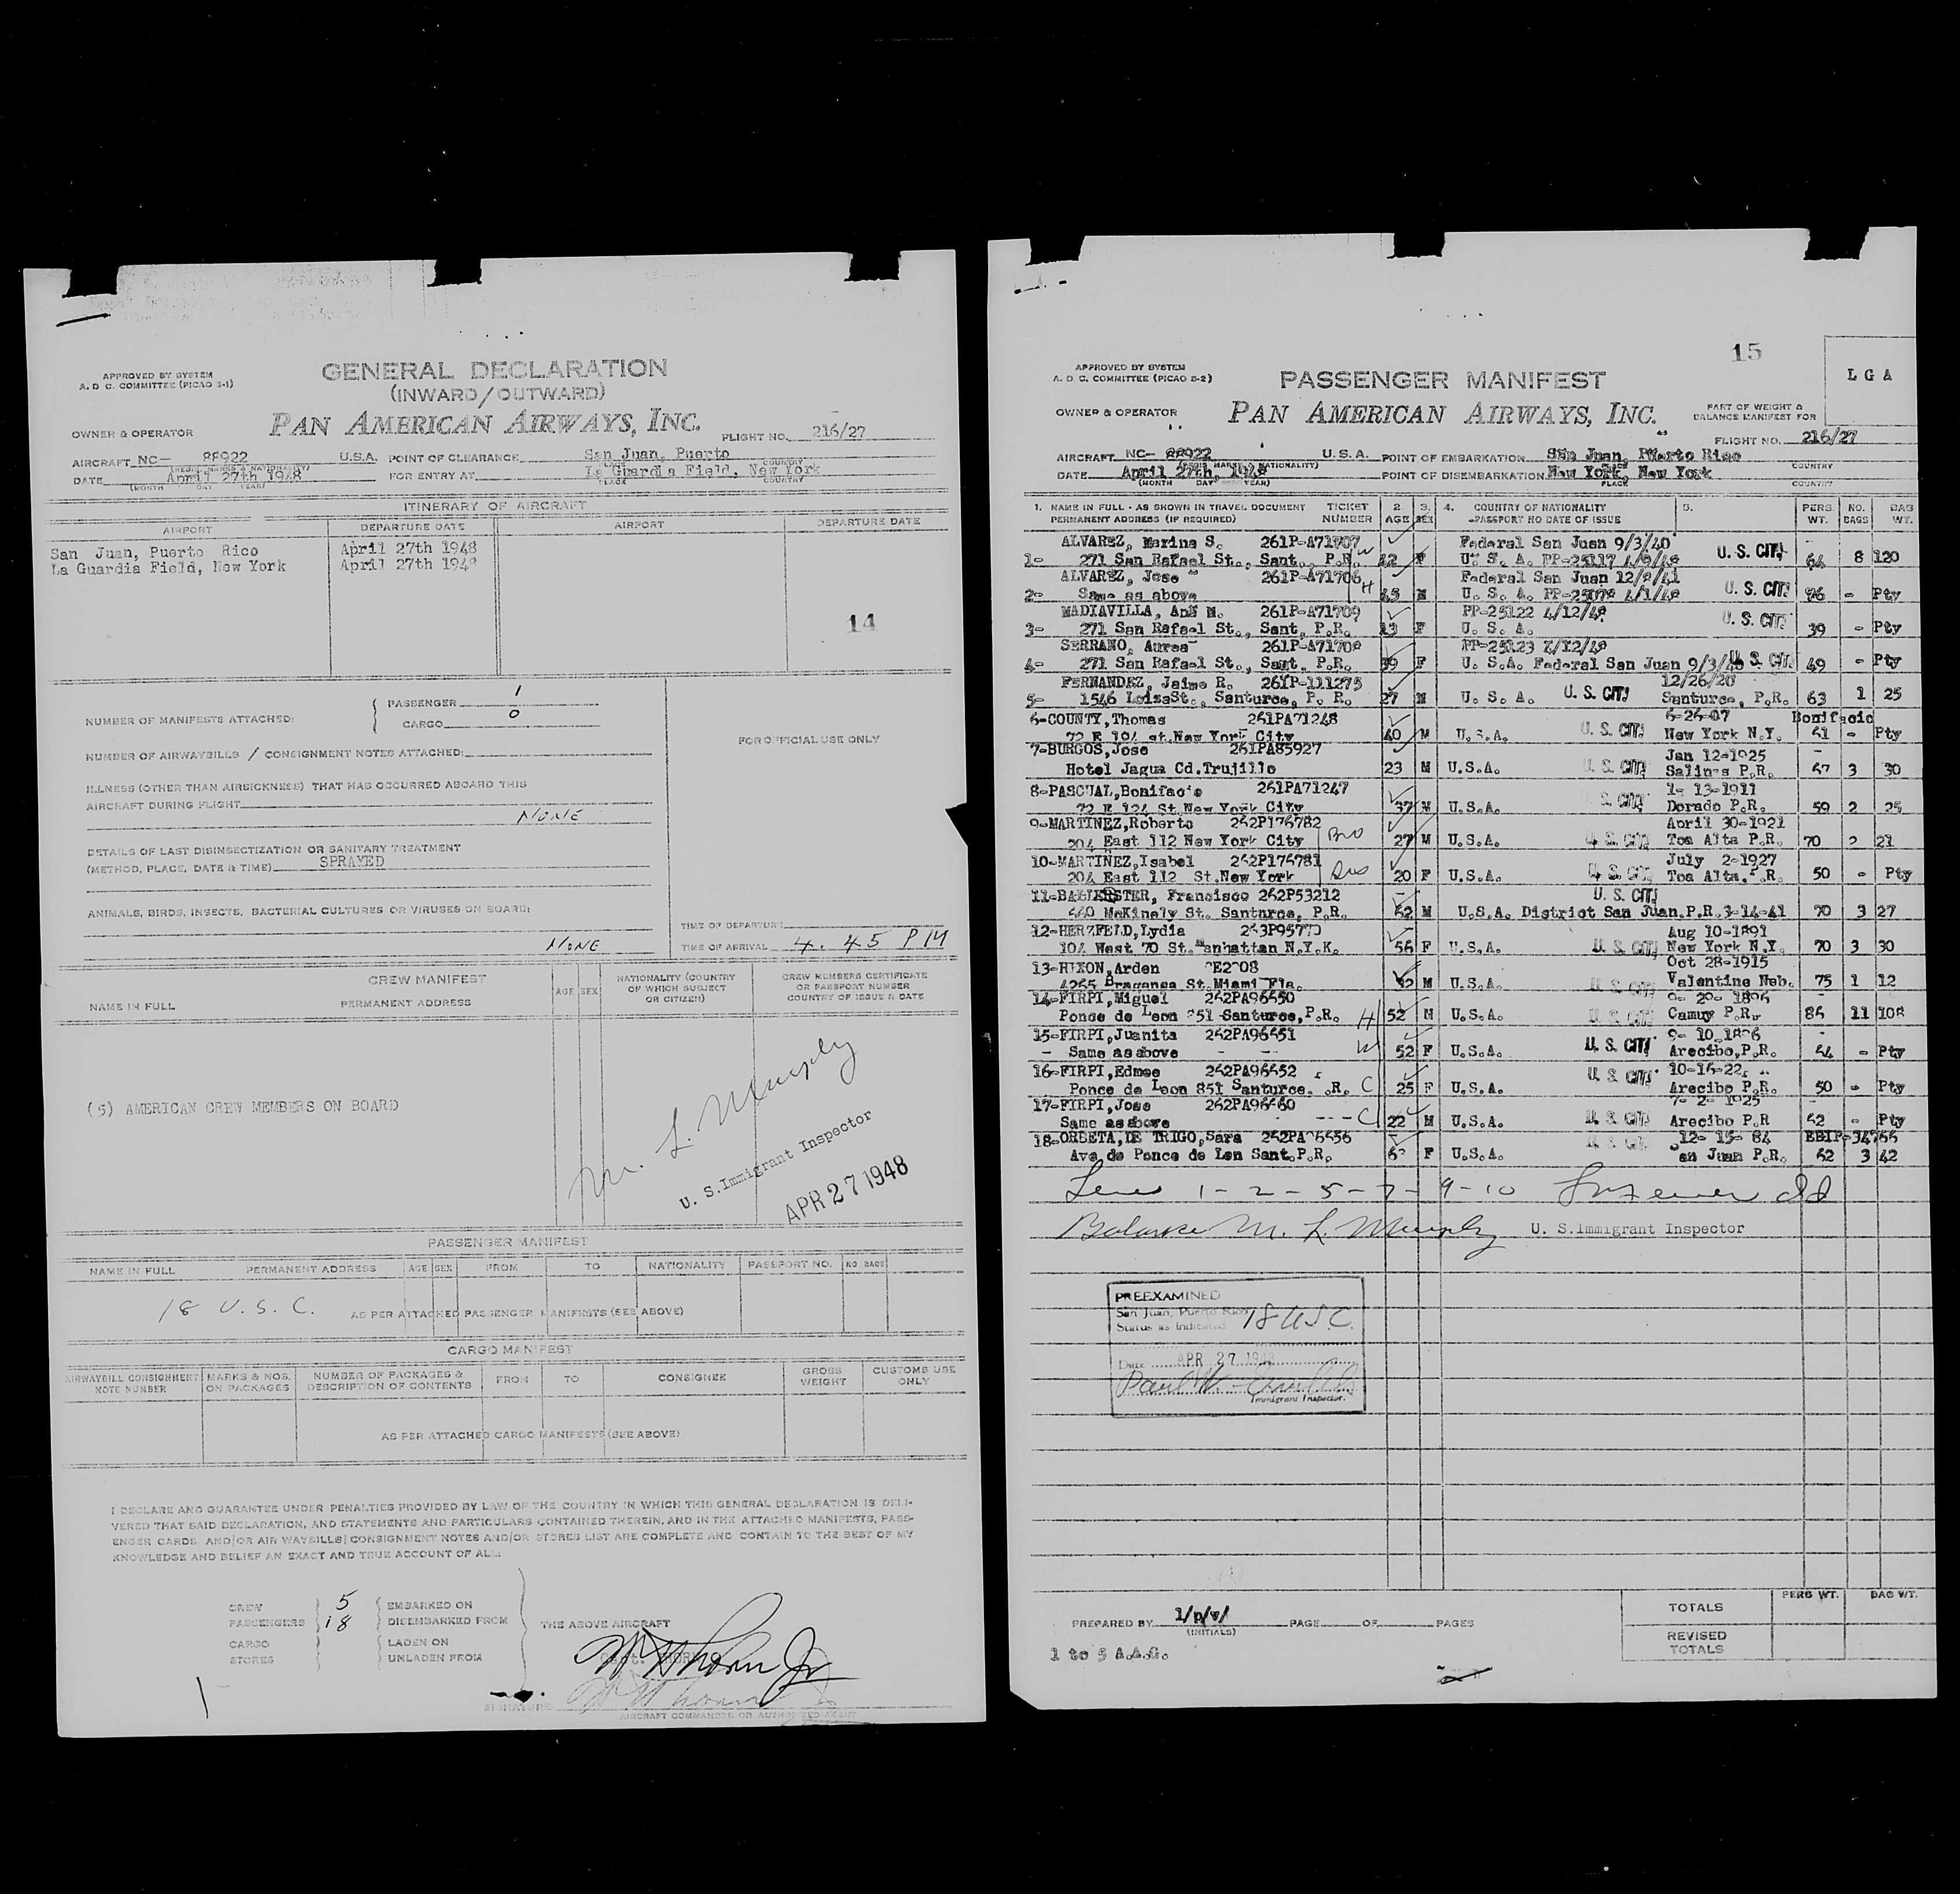 APPROVED BY SYSTEM
A. D C. COMMITTEE (PICAO S-1)
GENERAL DECLARATION
(INWARD/OUTWARD)
PAN AMERICAN AIRWAYS, INC.
OWNER & OPERATOR
FLIGHT NO. 216/27
AIRCRAFT NC- 88922 U.S.A. POINT OF CLEARANCE San Juan, Puerto
(REGIS. MARKS & NATIONALITY) PLACE COUNTRY
DATE April 27th 1948 FOR ENTRY AT La Guardia Field, New York
(MONTH DAY YEAR) PLACE COUNTRY
ITINERARY OF AIRCRAFT
AIRPORT DEPARTURE DATE AIRPORT DEPARTURE DATE
San Juan, Puerto Rico April 27th 1948
La Guardia Field, New York April 27th 1948
14
NUMBER OF MANIFESTS ATTACHED: PASSENGER 1
CARGO 0
FOR OFFICIAL USE ONLY
NUMBER OF AIRWAYBILLS / CONSIGNMENT NOTES ATTACHED:
ILLNESS (OTHER THAN AIRSICKNESS) THAT HAS OCCURRED ABOARD THIS
AIRCRAFT DURING FLIGHT
NONE
DETAILS OF LAST DISINSECTIZATION OR SANITARY TREATMENT
(METHOD, PLACE, DATE & TIME) SPRAYED
ANIMALS, BIRDS, INSECTS, BACTERIAL CULTURES OR VIRUSES ON BOARD:
NONE
TIME OF DEPARTURE
TIME OF ARRIVAL 4.45 PM
CREW MANIFEST
NAME IN FULL PERMANENT ADDRESS AGE SEX NATIONALITY (COUNTRY OF WHICH SUBJECT OR CITIZEN) CREW MEMBERS CERTIFICATE OR PASSPORT NUMBER COUNTRY OF ISSUE & DATE
(5) AMERICAN CREW MEMBERS ON BOARD
M. L. Murphy
U. S. Immigrant Inspector
APR 27 1948
PASSENGER MANIFEST
NAME IN FULL PERMANENT ADDRESS AGE SEX FROM TO NATIONALITY PASSPORT NO. NO BAGS
18 U.S.C. AS PER ATTACHED PASSENGER MANIFESTS (SEE ABOVE)
CARGO MANIFEST
AIRWAYBILL CONSIGNMENT NOTE NUMBER MARKS & NOS. ON PACKAGES NUMBER OF PACKAGES & DESCRIPTION OF CONTENTS FROM TO CONSIGNEE GROSS WEIGHT CUSTOMS USE ONLY
AS PER ATTACHED CARGO MANIFESTS (SEE ABOVE)
I DECLARE AND GUARANTEE UNDER PENALTIES PROVIDED BY LAW OF THE COUNTRY IN WHICH THIS GENERAL DECLARATION IS DELI-
VERED THAT SAID DECLARATION, AND STATEMENTS AND PARTICULARS CONTAINED THEREIN, AND IN THE ATTACHED MANIFESTS, PASS-
ENGER CARDS, AND/OR AIR WAYBILLS/CONSIGNMENT NOTES AND/OR STORES LIST ARE COMPLETE AND CONTAIN TO THE BEST OF MY
KNOWLEDGE AND BELIEF AN EXACT AND TRUE ACCOUNT OF ALL:
CREW 5 EMBARKED ON
PASSENGERS 18 DISEMBARKED FROM THE ABOVE AIRCRAFT
CARGO LADEN ON
STORES UNLADEN FROM
SIGNATURE
AIRCRAFT COMMANDER OR AUTHORIZED AGENT
15
LGA
APPROVED BY SYSTEM
A. D C. COMMITTEE (PICAO S-2)
PASSENGER MANIFEST
PAN AMERICAN AIRWAYS, INC.
OWNER & OPERATOR
PART OF WEIGHT &
BALANCE MANIFEST FOR
FLIGHT NO. 216/27
AIRCRAFT NC- 88922 U.S.A. POINT OF EMBARKATION San Juan, Puerto Rico
DATE April 27th, 1948 POINT OF DISEMBARKATION New York, New York
(MONTH DAY YEAR) PLACE COUNTRY
1. NAME IN FULL - AS SHOWN IN TRAVEL DOCUMENT TICKET 2. 3. 4. COUNTRY OF NATIONALITY 5. PERS. NO. BAG
PERMANENT ADDRESS (IF REQUIRED) NUMBER AGE SEX PASSPORT NO DATE OF ISSUE WT. BAGS WT.
ALVAREZ, Marina S. 261P-A71707 Federal San Juan 9/3/40
1- 271 San Rafael St., Sant., P.R. W 42 F U. S. A. PP-25117 4/9/48 U. S. CIT. 64 8 120
ALVAREZ, Jose 261P-A71706 Federal San Juan 12/8/41
2- Same as above H 45 M U. S. A. PP-25078 4/1/48 U. S. CIT. 76 - Pty
MADIAVILLA, Ana M. 261P-A71709 PP-25122 4/12/48
3- 271 San Rafael St., Sant, P.R. 13 F U. S. A. U. S. CIT. 39 - Pty
SERRANO, Aurea 261P-A71708 PP-25123 4/12/48
4- 271 San Rafael St., Sant, P.R. 39 F U. S.A. Federal San Juan 9/3/40 U. S. CIT. 49 - Pty
FERNANDEZ, Jaime R. 261P-111275 12/26/20
5- 1546 Loiza St., Santurce, P. R. 27 M U. S. A. U. S. CIT. Santurce, P.R. 63 1 25
6-COUNTY, Thomas 261PA71248 6-26-07 Bonifacio
72 E 104 st.New York City 40 M U.S.A. U. S. CIT. New York N.Y. 61 - Pty
7-BURGOS, Jose 261PA85927 Jan 12-1925
Hotel Jagua Cd.Trujillo 23 M U.S.A. U. S. CIT. Salinas P.R. 67 3 30
8-PASCUAL, Bonifacio 261PA71247 1- 13-1911
72 E 124 St New York City 37 M U.S.A. U. S. CIT. Dorado P.R. 59 2 25
9-MARTINEZ, Roberto 262P176782 April 30-1921
204 East 112 New York City Bro 27 M U.S.A. U. S. CIT. Toa Alta P.R. 70 2 21
10-MARTINEZ, Isabel 262P176781 July 2-1927
204 East 112 St.New York 20 F U.S.A. U. S. CIT. Toa Alta.P.R. 50 - Pty
11-BALLESTER, Francisco 262P53212 U. S. CIT.
McKinely St. Santurce, P.R. 52 M U.S.A. District San Juan.P.R.3-14-41 70 3 27
12-HERZFELD, Lydia Aug 10-1891
104 West 70 St. Manhattan N.Y.K. 56 F U.S.A. U. S. CIT. New York N.Y. 70 3 30
13-HIXON, Arden Oct 28-1915
4265 Braganza St.Miami Fla. 32 M U.S.A. U. S. CIT. Valentine Neb. 75 1 12
14-FIRPI, Miguel 262PA96650 9- 29- 1896
Ponce de Leon 851 Santurce, P.R. H 52 M U.S.A. U. S. CIT. Camuy P.R. 86 11 108
15-FIRPI, Juanita 262PA96651 9- 10 1896
Same as above W 52 F U.S.A. U. S. CIT. Arecibo, P.R. 64 - Pty
16-FIRPI, Edmee 262PA96652 10-16-22
Ponce de Leon 851 Santurce. .R. C 25 F U.S.A. U. S. CIT. Arecibo P.R. 50 - Pty
17-FIRPI, Jose 262PA96660 7- 2- 1925
Same as above C 22 M U.S.A. U. S. CIT. Arecibo P.R 62 - Pty
18-ORBETA, DE TRIGO, Sara 12- 15- 84 EBIP-34766
Ave de Ponce de Len Sant.P.R. F U.S.A. San Juan P.R. 62 3 42
Lines 1-2-5-7-9-10
Balance M. L. Murphy U. S. Immigrant Inspector
PREEXAMINED
San Juan, Puerto Rico
Status as Indicated 18 USC.
Date APR 27 1948
Immigrant Inspector.
PREPARED BY 1/p/v/ PAGE OF PAGES
(INITIALS)
1 to 5 A.A.G.
PERS WT. BAG WT.
TOTALS
REVISED
TOTALS